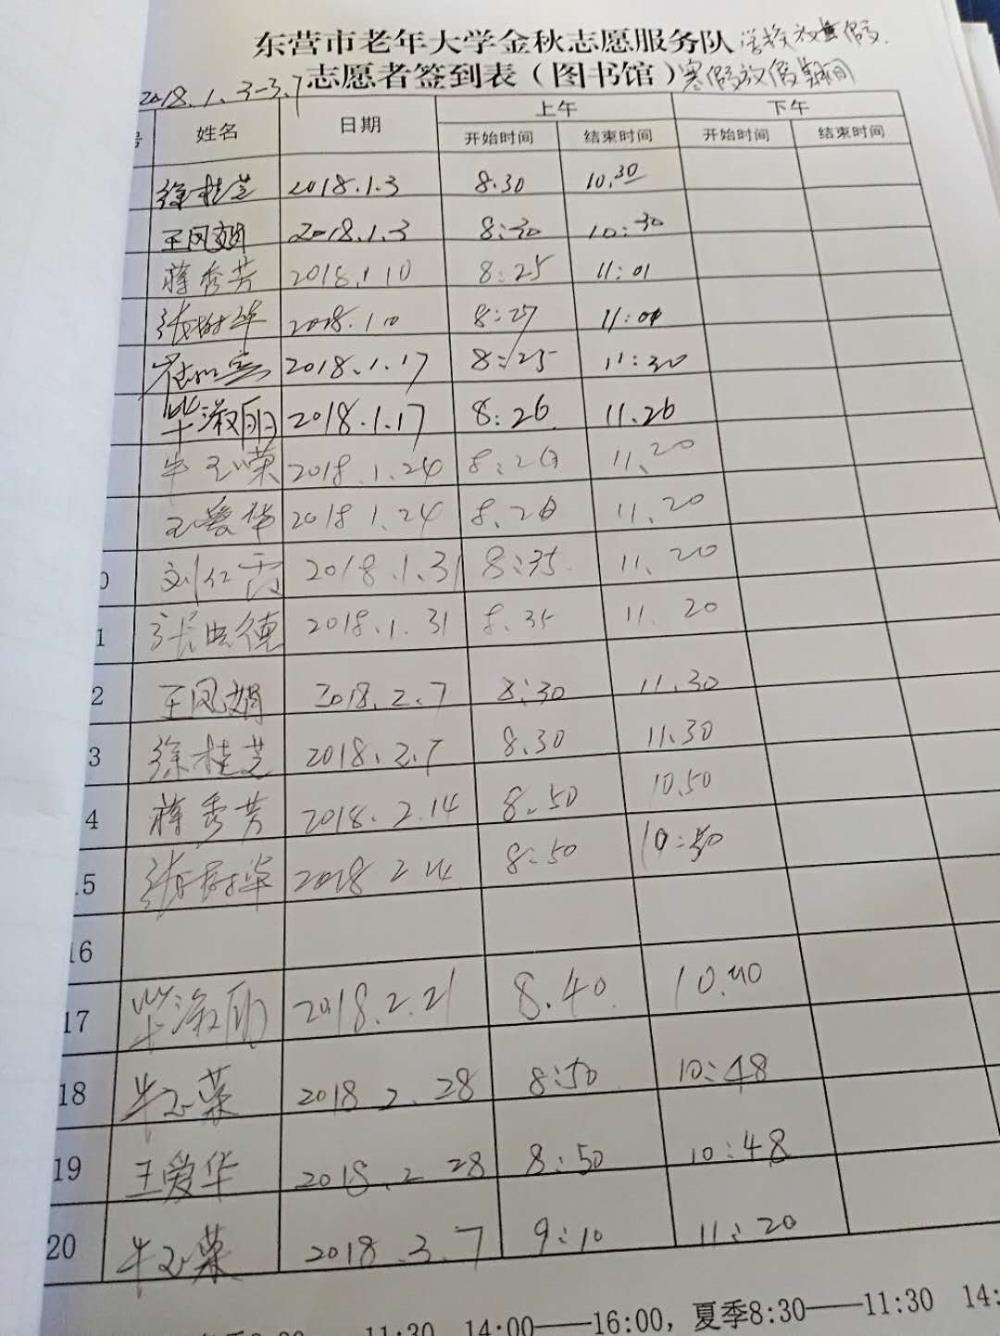 东营市老年大学金秋志愿服务队 学校放寒假
志愿者签到表（图书馆）寒假放假期间
2018.1.3-3.7
号 姓名 日期 上午 下午
开始时间 结束时间 开始时间 结束时间
徐桂芝 2018.1.3 8.30 10.30
王凤娟 2018.1.3 8:30 10:30
蒋秀芳 2018.1.10 8:25 11:01
张树华 2018.1.10 8:27 11:01
2018.1.17 8:25 11:30
毕淑丽 2018.1.17 8:26 11.26
牛玉荣 2018.1.24 11.20
王爱华 2018 1.24 11.20
0 刘仁霞 2018.1.31 8:35 11.20
1 张忠德 2018.1.31 8.35 11.20
2 王凤娟 2018.2.7 8:30 11.30
3 徐桂芝 2018.2.7 8.30 11.30
4 蒋秀芳 2018.2.14 8.50 10.50
.5 张树华 2018 2.14 8:50 10:50
16
17 毕淑丽 2018.2.21 8.40 10.40
18 牛玉荣 2018 2.28 8:50 10:48
19 王爱华 2018.2.28 8:50 10:48
20 牛玉荣 2018.3.7 9:10 11:20
11:30 14:00——16:00，夏季8:30——11:30 14: